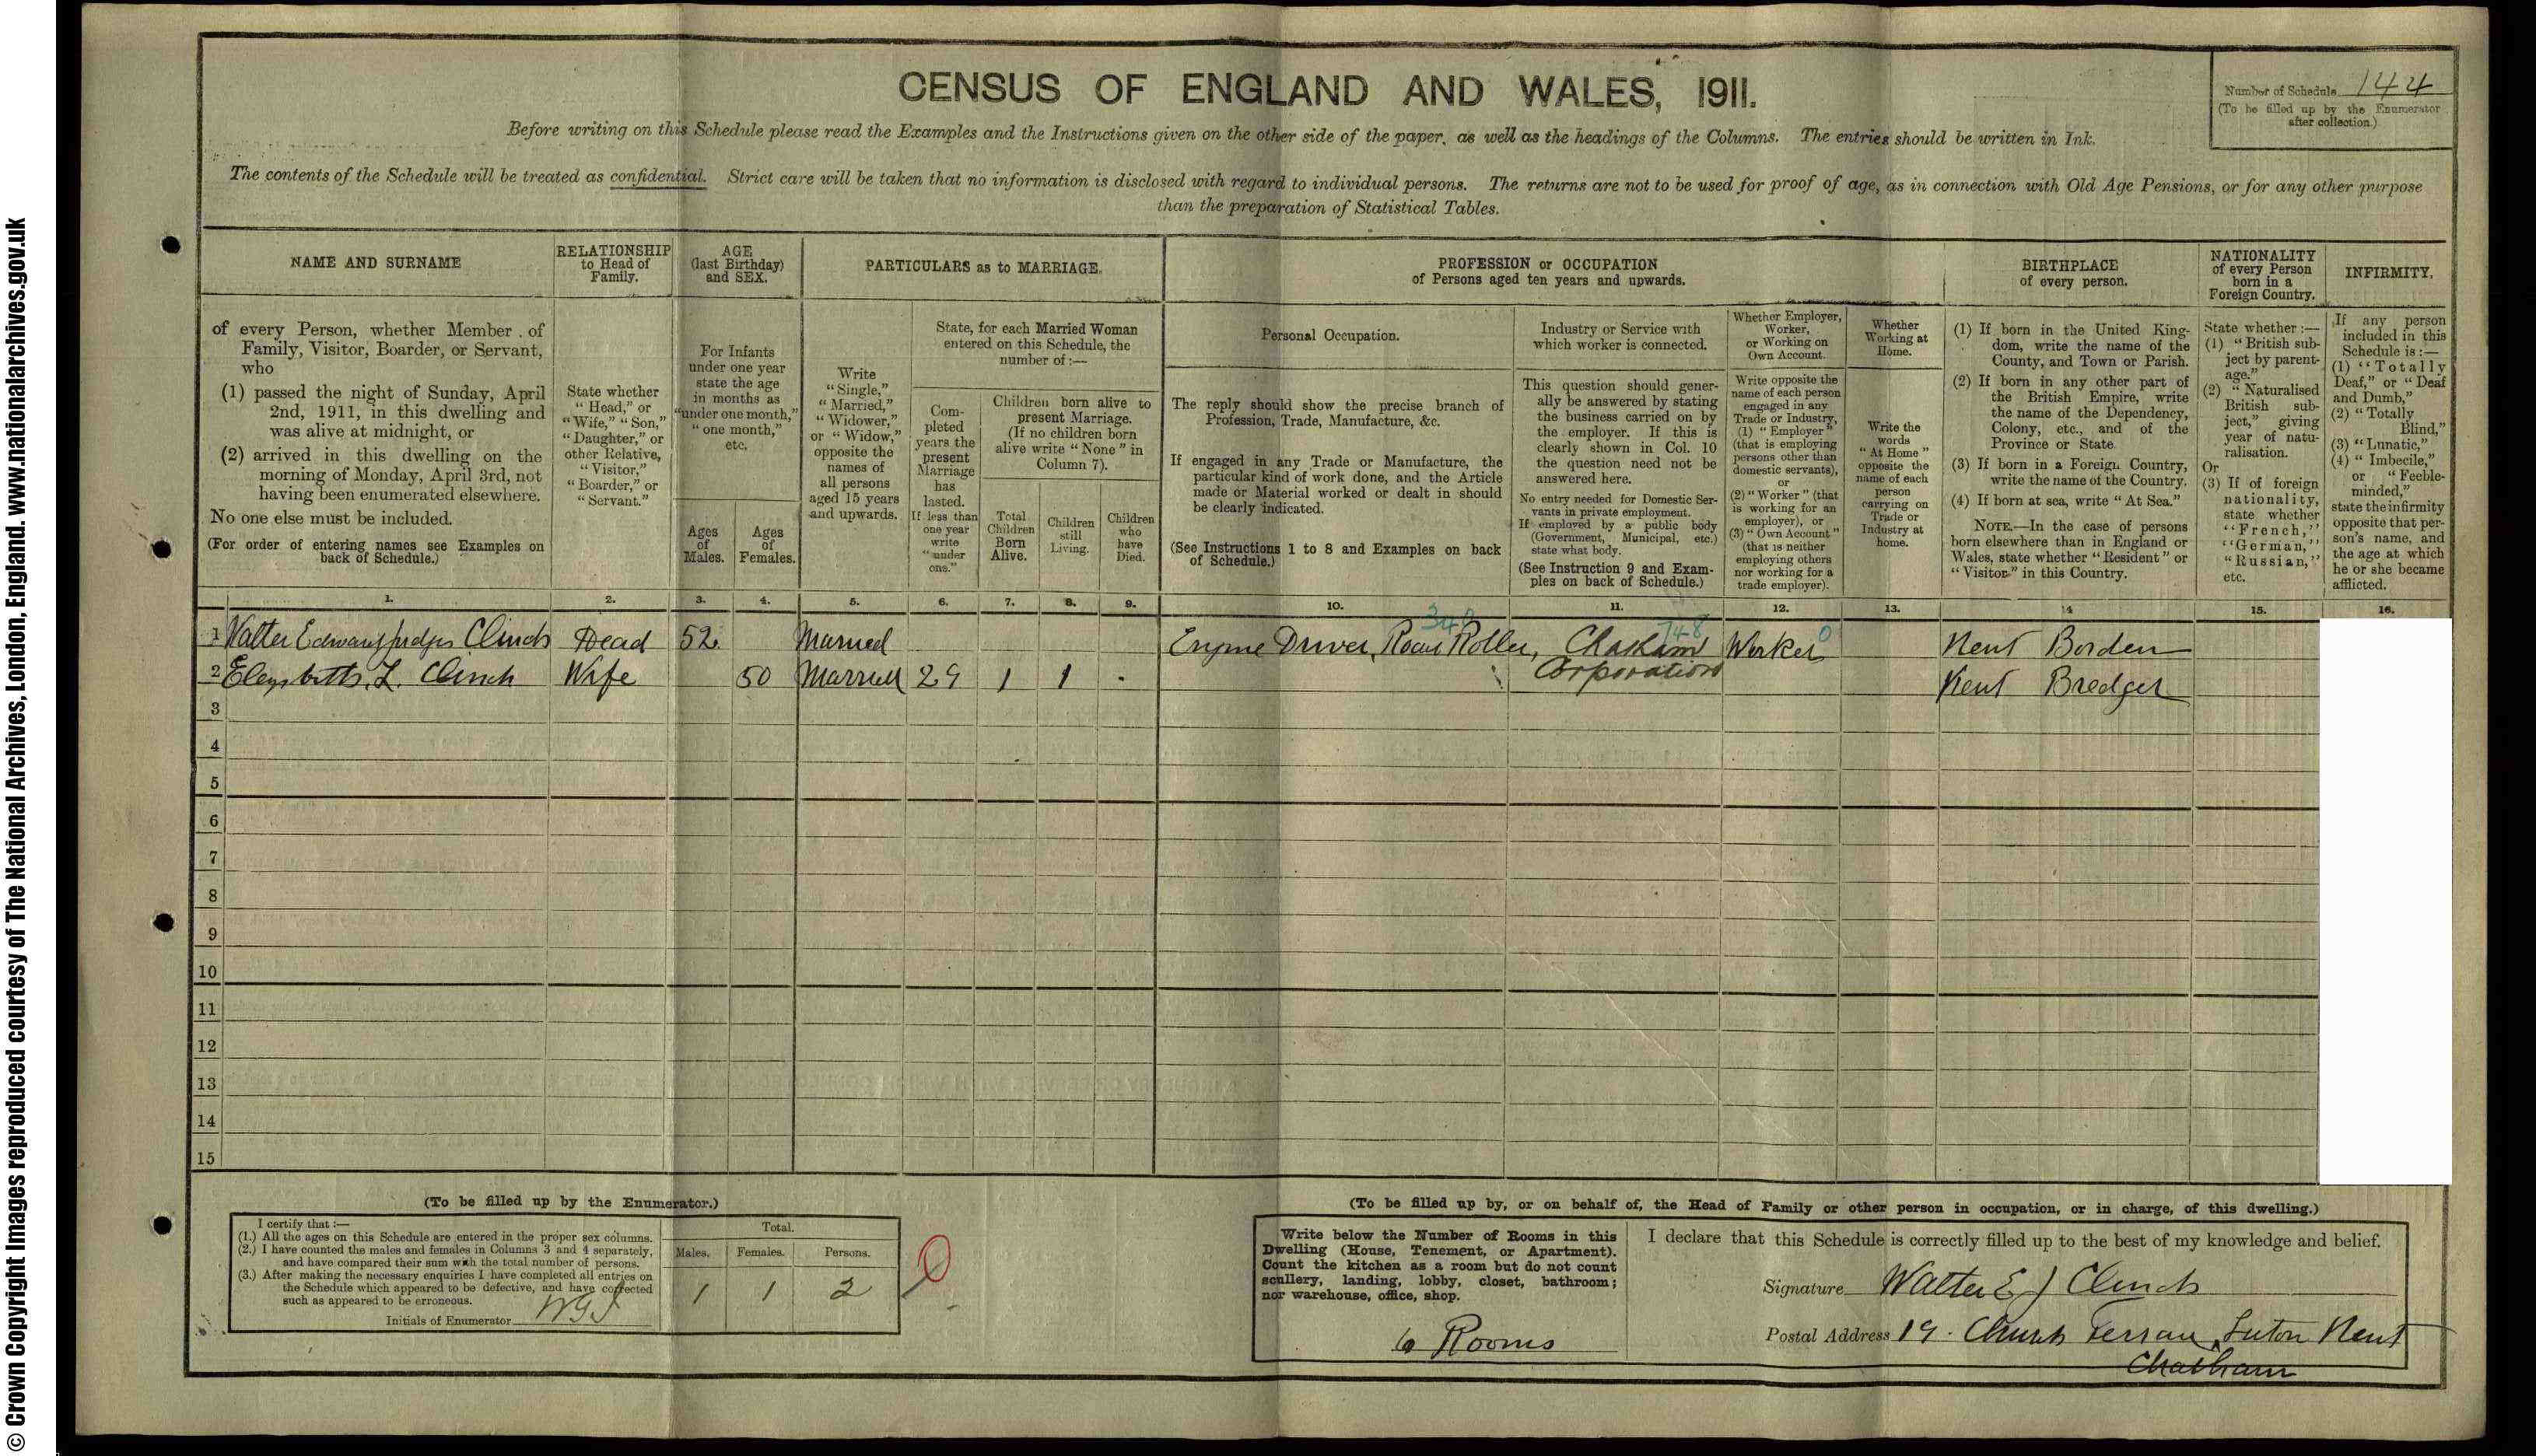 © Crown Copyright Images reproduced courtesy of The National Archives, London, England. www.nationalarchives.gov.uk
CENSUS OF ENGLAND AND WALES, 1911.
Number of Schedule 144
(To be filled up by the Enumerator
after collection.)
Before writing on this Schedule please read the Examples and the Instructions given on the other side of the paper, as well as the headings of the Columns. The entries should be written in Ink.
The contents of the Schedule will be treated as confidential. Strict care will be taken that no information is disclosed with regard to individual persons. The returns are not to be used for proof of age, as in connection with Old Age Pensions, or for any other purpose
than the preparation of Statistical Tables.
NAME AND SURNAME
of every Person, whether Member of
Family, Visitor, Boarder, or Servant,
who
(1) passed the night of Sunday, April
2nd, 1911, in this dwelling and
was alive at midnight, or
(2) arrived in this dwelling on the
morning of Monday, April 3rd, not
having been enumerated elsewhere.
No one else must be included.
(For order of entering names see Examples on
back of Schedule.)
RELATIONSHIP
to Head of
Family.
State whether
"Head," or
"Wife," "Son,"
"Daughter," or
other Relative,
"Visitor,"
"Boarder," or
"Servant."
AGE
(last Birthday)
and SEX.
For Infants
under one year
state the age
in months as
"under one month,"
"one month,"
etc.
Ages
of
Males.
Ages
of
Females.
PARTICULARS as to MARRIAGE.
Write
"Single,"
"Married,"
"Widower,"
or "Widow,"
opposite the
names of
all persons
aged 15 years
and upwards.
State, for each Married Woman
entered on this Schedule, the
number of:—
Com-
pleted
years the
present
Marriage
has
lasted.
If less than
one year
write
"under
one."
Children born alive to
present Marriage.
(If no children born
alive write "None" in
Column 7).
Total
Children
Born
Alive.
Children
still
Living.
Children
who
have
Died.
PROFESSION or OCCUPATION
of Persons aged ten years and upwards.
Personal Occupation.
The reply should show the precise branch of
Profession, Trade, Manufacture, &c.
If engaged in any Trade or Manufacture, the
particular kind of work done, and the Article
made or Material worked or dealt in should
be clearly indicated.
(See Instructions 1 to 8 and Examples on back
of Schedule.)
Industry or Service with
which worker is connected.
This question should gener-
ally be answered by stating
the business carried on by
the employer. If this is
clearly shown in Col. 10
the question need not be
answered here.
No entry needed for Domestic Ser-
vants in private employment.
If employed by a public body
(Government, Municipal, etc.)
state what body.
(See Instruction 9 and Exam-
ples on back of Schedule.)
Whether Employer,
Worker,
or Working on
Own Account.
Write opposite the
name of each person
engaged in any
Trade or Industry,
(1) "Employer"
(that is employing
persons other than
domestic servants),
or
(2) "Worker" (that
is working for an
employer), or
(3) "Own Account"
(that is neither
employing others
nor working for a
trade employer).
Whether
Working at
Home.
Write the
words
"At Home"
opposite the
name of each
person
carrying on
Trade or
Industry at
home.
BIRTHPLACE
of every person.
(1) If born in the United King-
dom, write the name of the
County, and Town or Parish.
(2) If born in any other part of
the British Empire, write
the name of the Dependency,
Colony, etc., and of the
Province or State.
(3) If born in a Foreign Country,
write the name of the Country.
(4) If born at sea, write "At Sea."
NOTE.—In the case of persons
born elsewhere than in England or
Wales, state whether "Resident" or
"Visitor" in this Country.
NATIONALITY
of every Person
born in a
Foreign Country.
State whether:—
(1) "British sub-
ject by parent-
age."
(2) "Naturalised
British sub-
ject," giving
year of natu-
ralisation.
Or
(3) If of foreign
nationality,
state whether
"French,"
"German,"
"Russian,"
etc.
INFIRMITY.
If any person
included in this
Schedule is:—
(1) "Totally
Deaf," or "Deaf
and Dumb,"
(2) "Totally
Blind,"
(3) "Lunatic,"
(4) "Imbecile,"
or "Feeble-
minded,"
state the infirmity
opposite that per-
son's name, and
the age at which
he or she became
afflicted.
1. 2. 3. 4. 5. 6. 7. 8. 9. 10. 11. 12. 13. 14 15. 16.
340 748 0
1 Walter Edward Judges Clinch Head 52 Married Engine Driver, Road Roller, Chatham Worker Kent Borden
Corporation
2 Elizabeth. L. Clinch Wife 50 Married 29 1 1 - Kent Bredgar
3
4
5
6
7
8
9
10
11
12
13
14
15
(To be filled up by the Enumerator.)
I certify that:—
(1.) All the ages on this Schedule are entered in the proper sex columns.
(2.) I have counted the males and females in Columns 3 and 4 separately,
and have compared their sum with the total number of persons.
(3.) After making the necessary enquiries I have completed all entries on
the Schedule which appeared to be defective, and have corrected
such as appeared to be erroneous.
Initials of Enumerator
Total.
Males. Females. Persons.
1 1 2
(To be filled up by, or on behalf of, the Head of Family or other person in occupation, or in charge, of this dwelling.)
Write below the Number of Rooms in this
Dwelling (House, Tenement, or Apartment).
Count the kitchen as a room but do not count
scullery, landing, lobby, closet, bathroom;
nor warehouse, office, shop.
6 Rooms
I declare that this Schedule is correctly filled up to the best of my knowledge and belief.
Signature Walter E J Clinch
Postal Address 19. Church Terrace, Luton Kent
Chatham